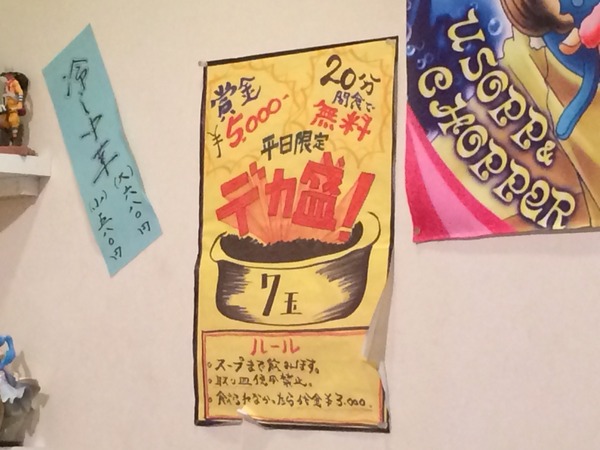 冷し中華
(大)六八〇円
(小)五八〇円
賞金
¥5,000-
20分
間食で
無料
平日限定
デカ盛!
7玉
ルール
○スープまで飲みほす。
○取り皿使用禁止。
○食べきれなかったら代金¥3,000.
USOPP &
CHOPPER